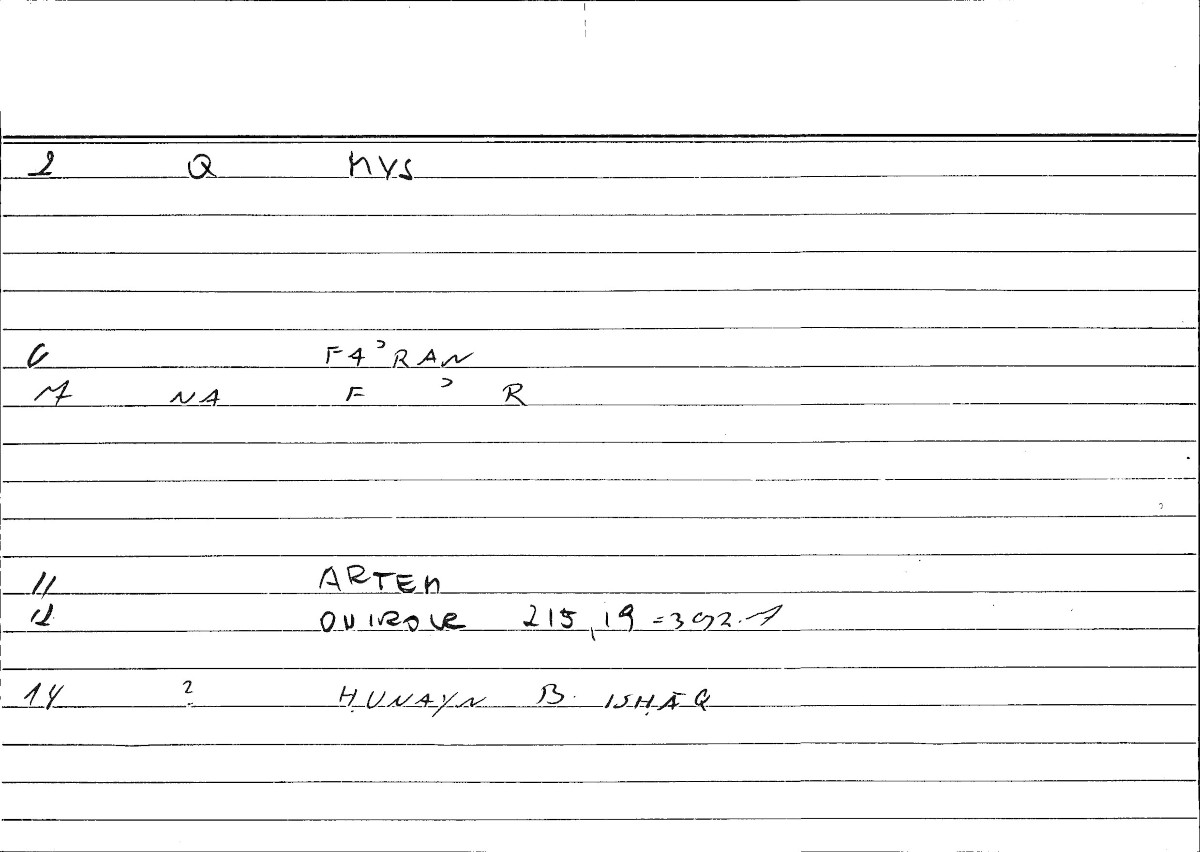 2 Q MYS
6 FA'RAN
7 NA F ' R
11 ARTEM
12 ONIROCR 215,19=392.7
14 ? ḤUNAYN B. ISḤĀQ